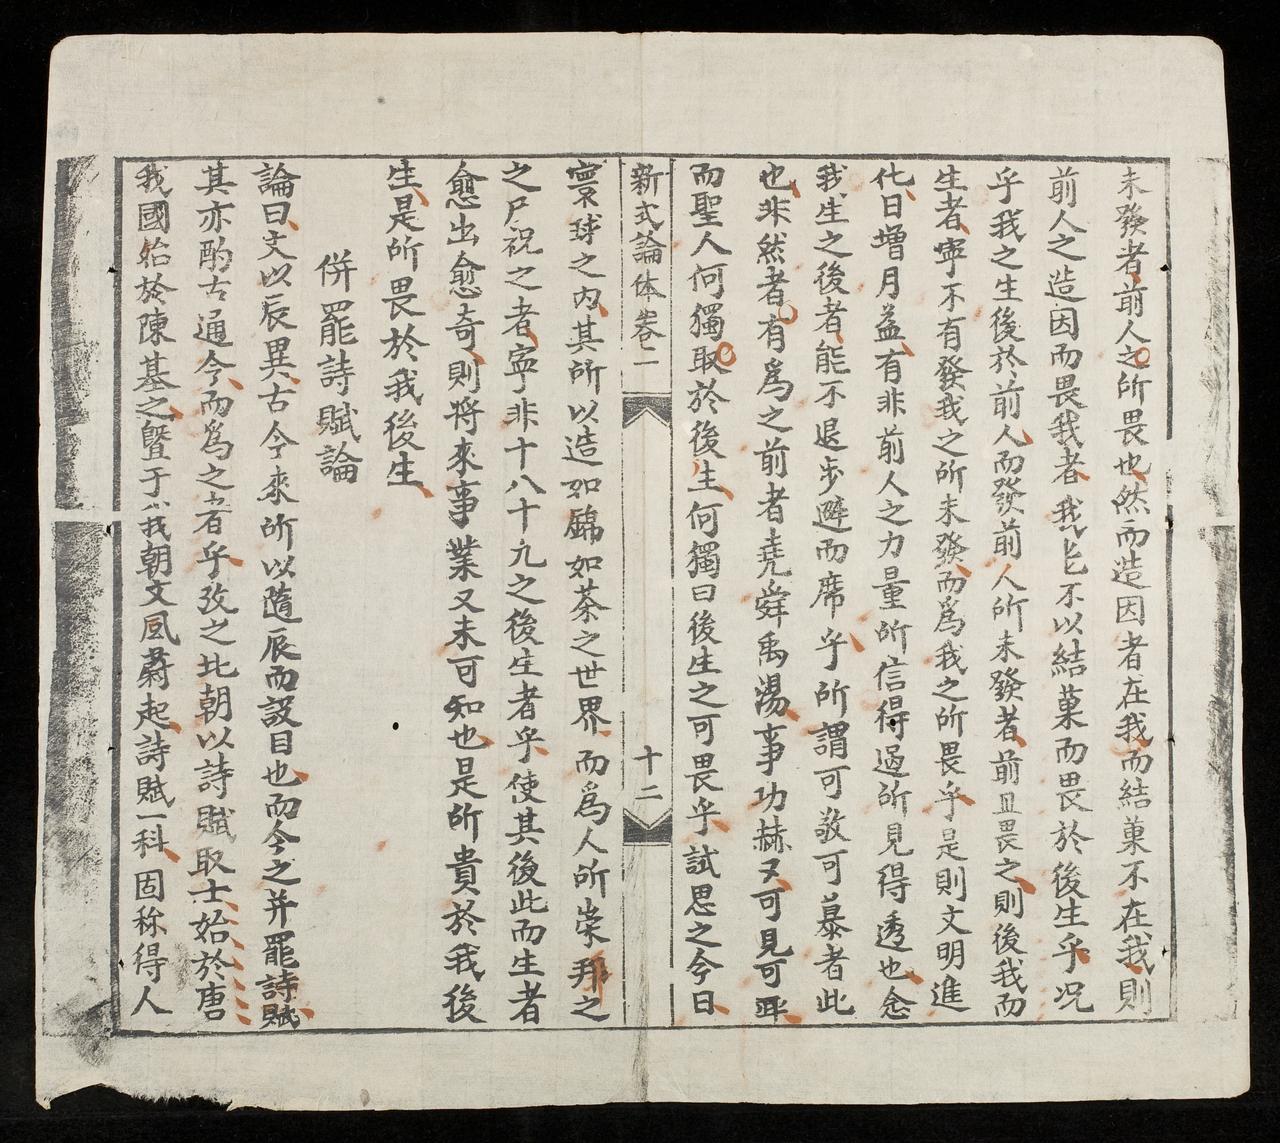 未發者前人之所畏也然而造因者在我而結菓不在我則
前人之造因而畏我者我也不以結菓而畏於後生乎况
乎我之生後於前人而發前人所未發者前且畏之則後我而
生者寜不有發我之所未發而爲我之所畏乎是則文明進
化日增月益有非前人之力量所信得過所見得透也念
我生之後者能不退步避而席乎所謂可敬可慕者此
也非然者有爲之前者堯舜禹湯事功赫又可見可
而聖人何獨取於後生何獨曰後生之可畏乎試思之今日
新式論体卷二
十二
寰球之内其所以造如錦如荼之世界而爲人所崇拜之
之尸祝之者寜非十八十九之後生者乎使其後此而生者
愈出愈奇則将來事業又未可知也是所貴於我後
生是所畏於我後生
併罷詩賦論
論曰文以辰異古今來所以隨辰而設目也而今之并罷詩賦
其亦酌古通今而爲之者乎攷之北朝以詩賦取士始於唐
我國始於陳基之曁于我朝文風蔚起詩賦一科固称得人